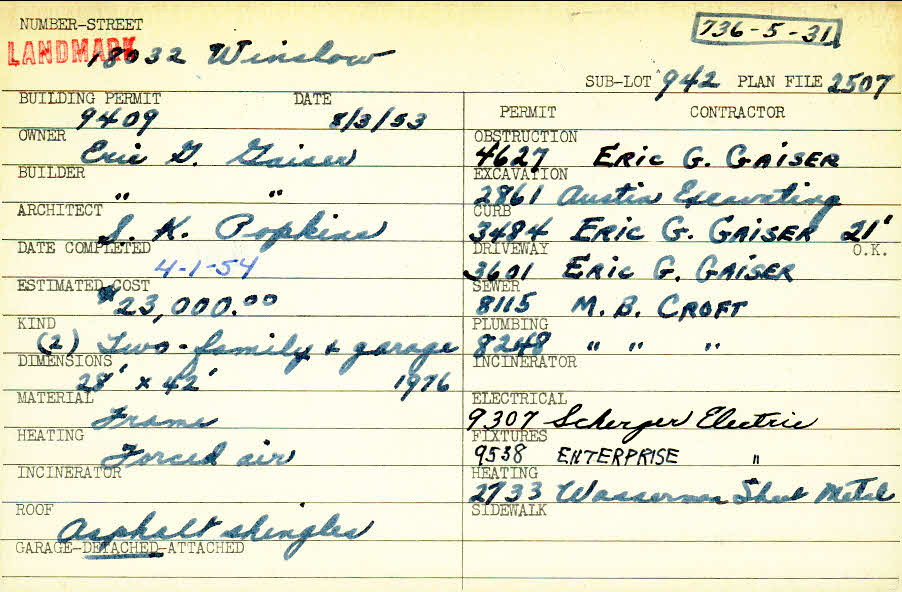 NUMBER-STREET
736-5-31
LANDMARK 18032 Winslow
SUB-LOT 942 PLAN FILE 2507
BUILDING PERMIT DATE
9409 8/3/53
OWNER
Eric G. Gaiser
BUILDER
" "
ARCHITECT
S. K. Popkins
DATE COMPLETED
4-1-54
ESTIMATED COST
$23,000.00
KIND
(2) Two-family & garage
DIMENSIONS
28' x 42' 1976
MATERIAL
Frame
HEATING
Forced air
INCINERATOR
ROOF
Asphalt shingles
GARAGE-DETACHED-ATTACHED
PERMIT CONTRACTOR
OBSTRUCTION
4627 ERIC G. GAISER
EXCAVATION
2861 Austin Excavating
CURB
3484 ERIC G. GAISER 21'
DRIVEWAY O.K.
3601 ERIC G. GAISER
SEWER
8115 M. B. CROFT
PLUMBING
8248 " " "
INCINERATOR
ELECTRICAL
9307 Scherger Electric
FIXTURES
9538 ENTERPRISE "
HEATING
2733 Wasserman Sheet Metal
SIDEWALK